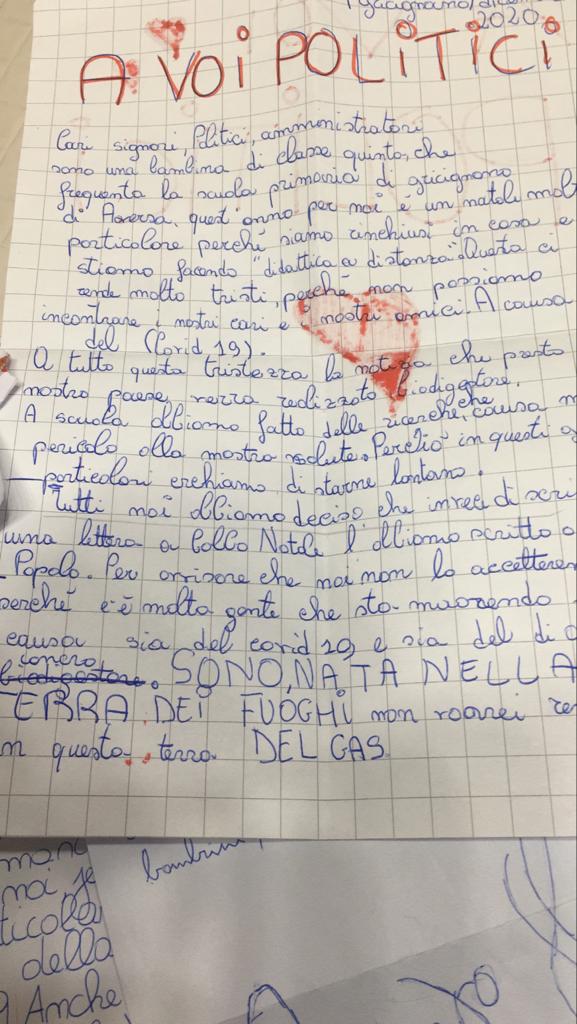 2020
A VOI POLITICI
Cari signori, Politici, amministratori
sono una bambina di classe quinta, che
frequenta la scuola primaria di gricignano
di Aversa. quest'anno per noi è un natale mol
particolare perché siamo rinchiusi in casa e
stiamo facendo "didattica a distanza". Questa ci
rende molto tristi, perché non possiamo
incontrare i nostri cari e i nostri amici. A causa
del (Covid 19).
A tutto questa tristezza la notizia che presto
nostro paese verra realizzato biodigestore.
A scuola abbiamo fatto delle ricerche, che causa
pericolo alla nostra salute. Perciò in questi
particolari cerchiamo di starne lontano.
Tutti noi abbiamo deciso che invece di scri
una lettera a Babbo Natale l'abbiamo scritto a
Popolo. Per avvisare che noi non lo accettere
perché c'è molta gente che sta morendo
causa sia del covid 19 e sia del di
cancro. SONO NATA NELLA
TERRA DEI FUOCHI non vorrei
in questa terra DEL GAS.
bambini,
noi
della
Anche